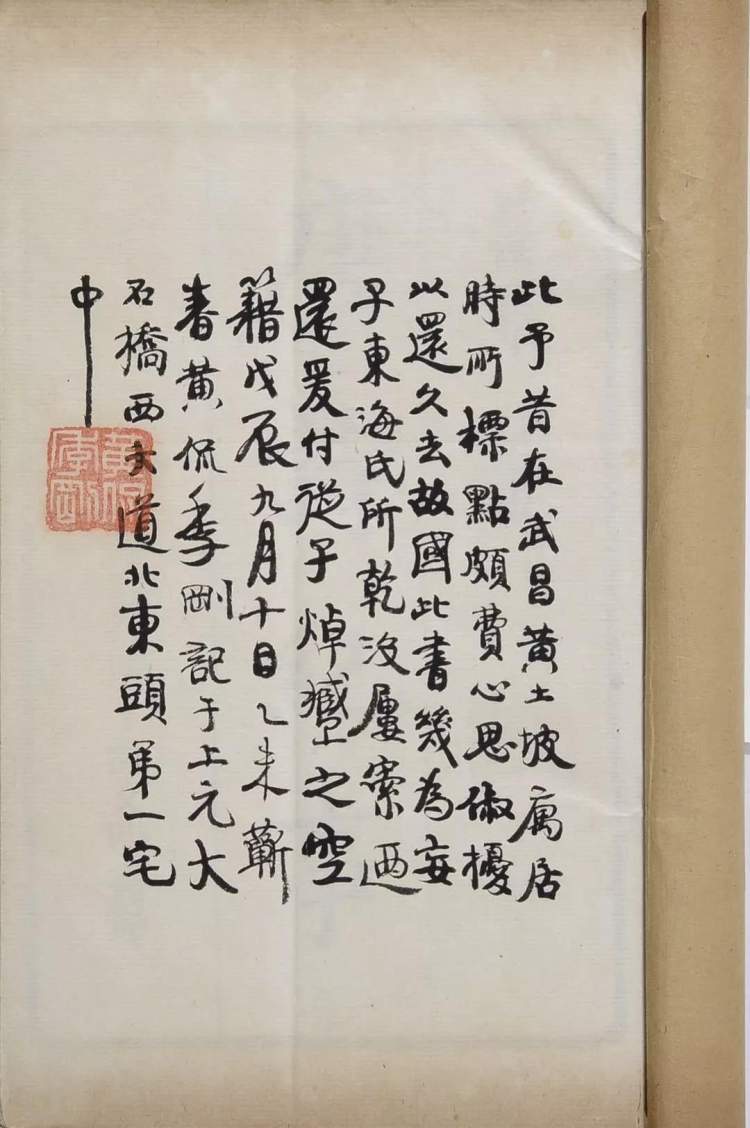 此予昔在武昌黃土坡寓居
時所標點頗費心思俶擾
以還久去故國此書幾為妄
子東海氏所乾沒屢索迺
還爰付從子焯之空
籍戊辰九月十日乙未蘄
春黃侃季剛記于上元大
石橋西大道北東頭弟一宅
中
黃侃季剛